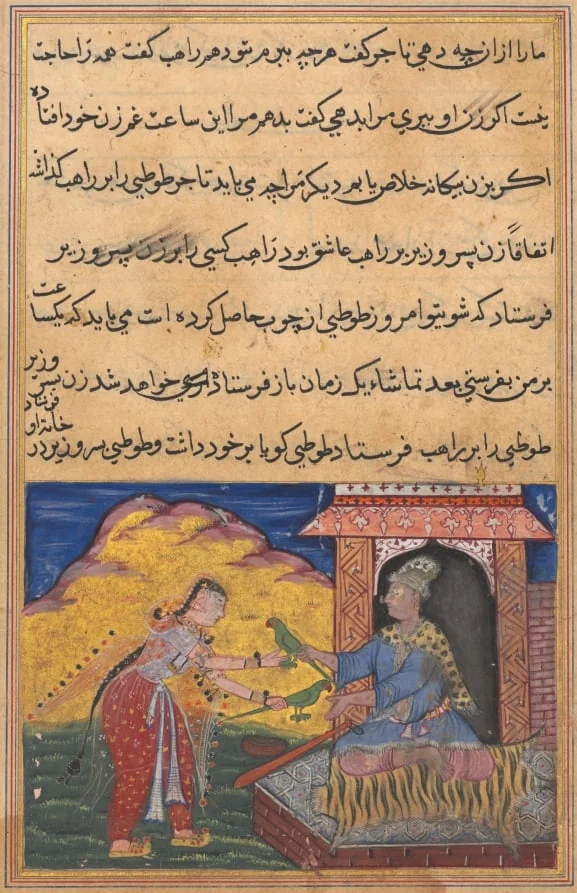 مارا ازان چه دهي تاجر کفت هرچه ببرم بتو دهم راهب کفت همه را حاجت
نیست اکر زن او ببري مرا بدهي کفت بدهم مرا این ساعت غم زن خود افتاده
اکر بزن بیکانه خلاص یابم دیکر مرا چه مي باید تاجر طوطیي را بر راهب کذاشت
اتفاقاً زن پسر وزیر بر راهب عاشق بود راهب کسي را بر زن پسر وزیر
فرستاد که شوي تو امروز طوطیي از چوب حاصل کرده است مي باید که یکساعت
بر من بفرستي بعد تماشاء یک زمان باز فرستاده خواهد شد زن پسر وزیر
طوطیي را بر راهب فرستاد طوطیي کویا بر خود داشت و طوطیي پسر وزیر در خانهٔ او فرستاد